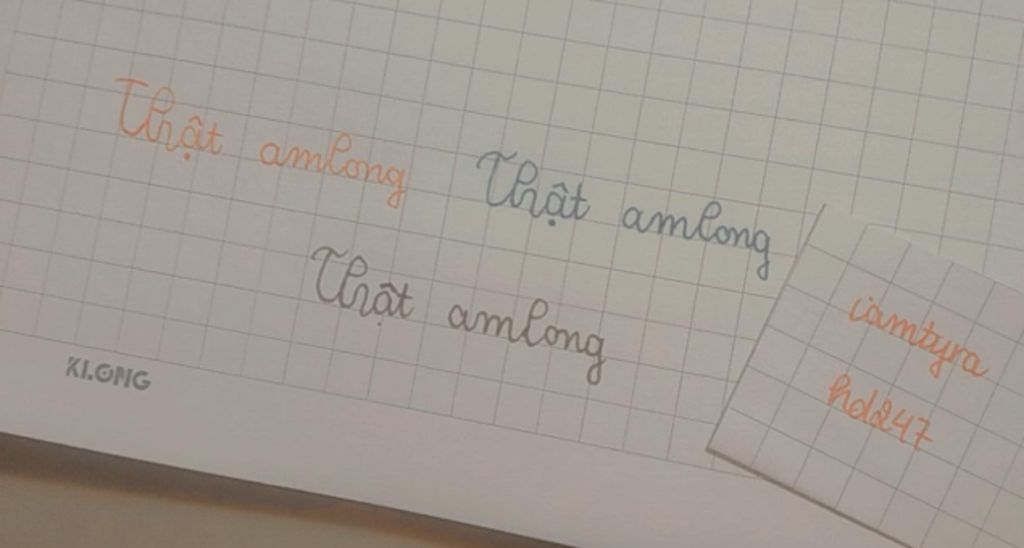 Thật amlong
Thật amlong
Thật amlong
KLONG
iamtyra
hd247